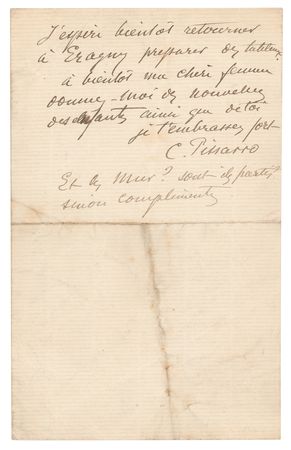 J'espère bientôt retourner
à Eragny preparer des tableaux.
à bientôt ma chère femme
donne-moi des nouvelles
des enfants ainsi que de toi
je t'embrasse fort
C. Pissarro
Et les Mur? sont-ils partis
sinon compliments